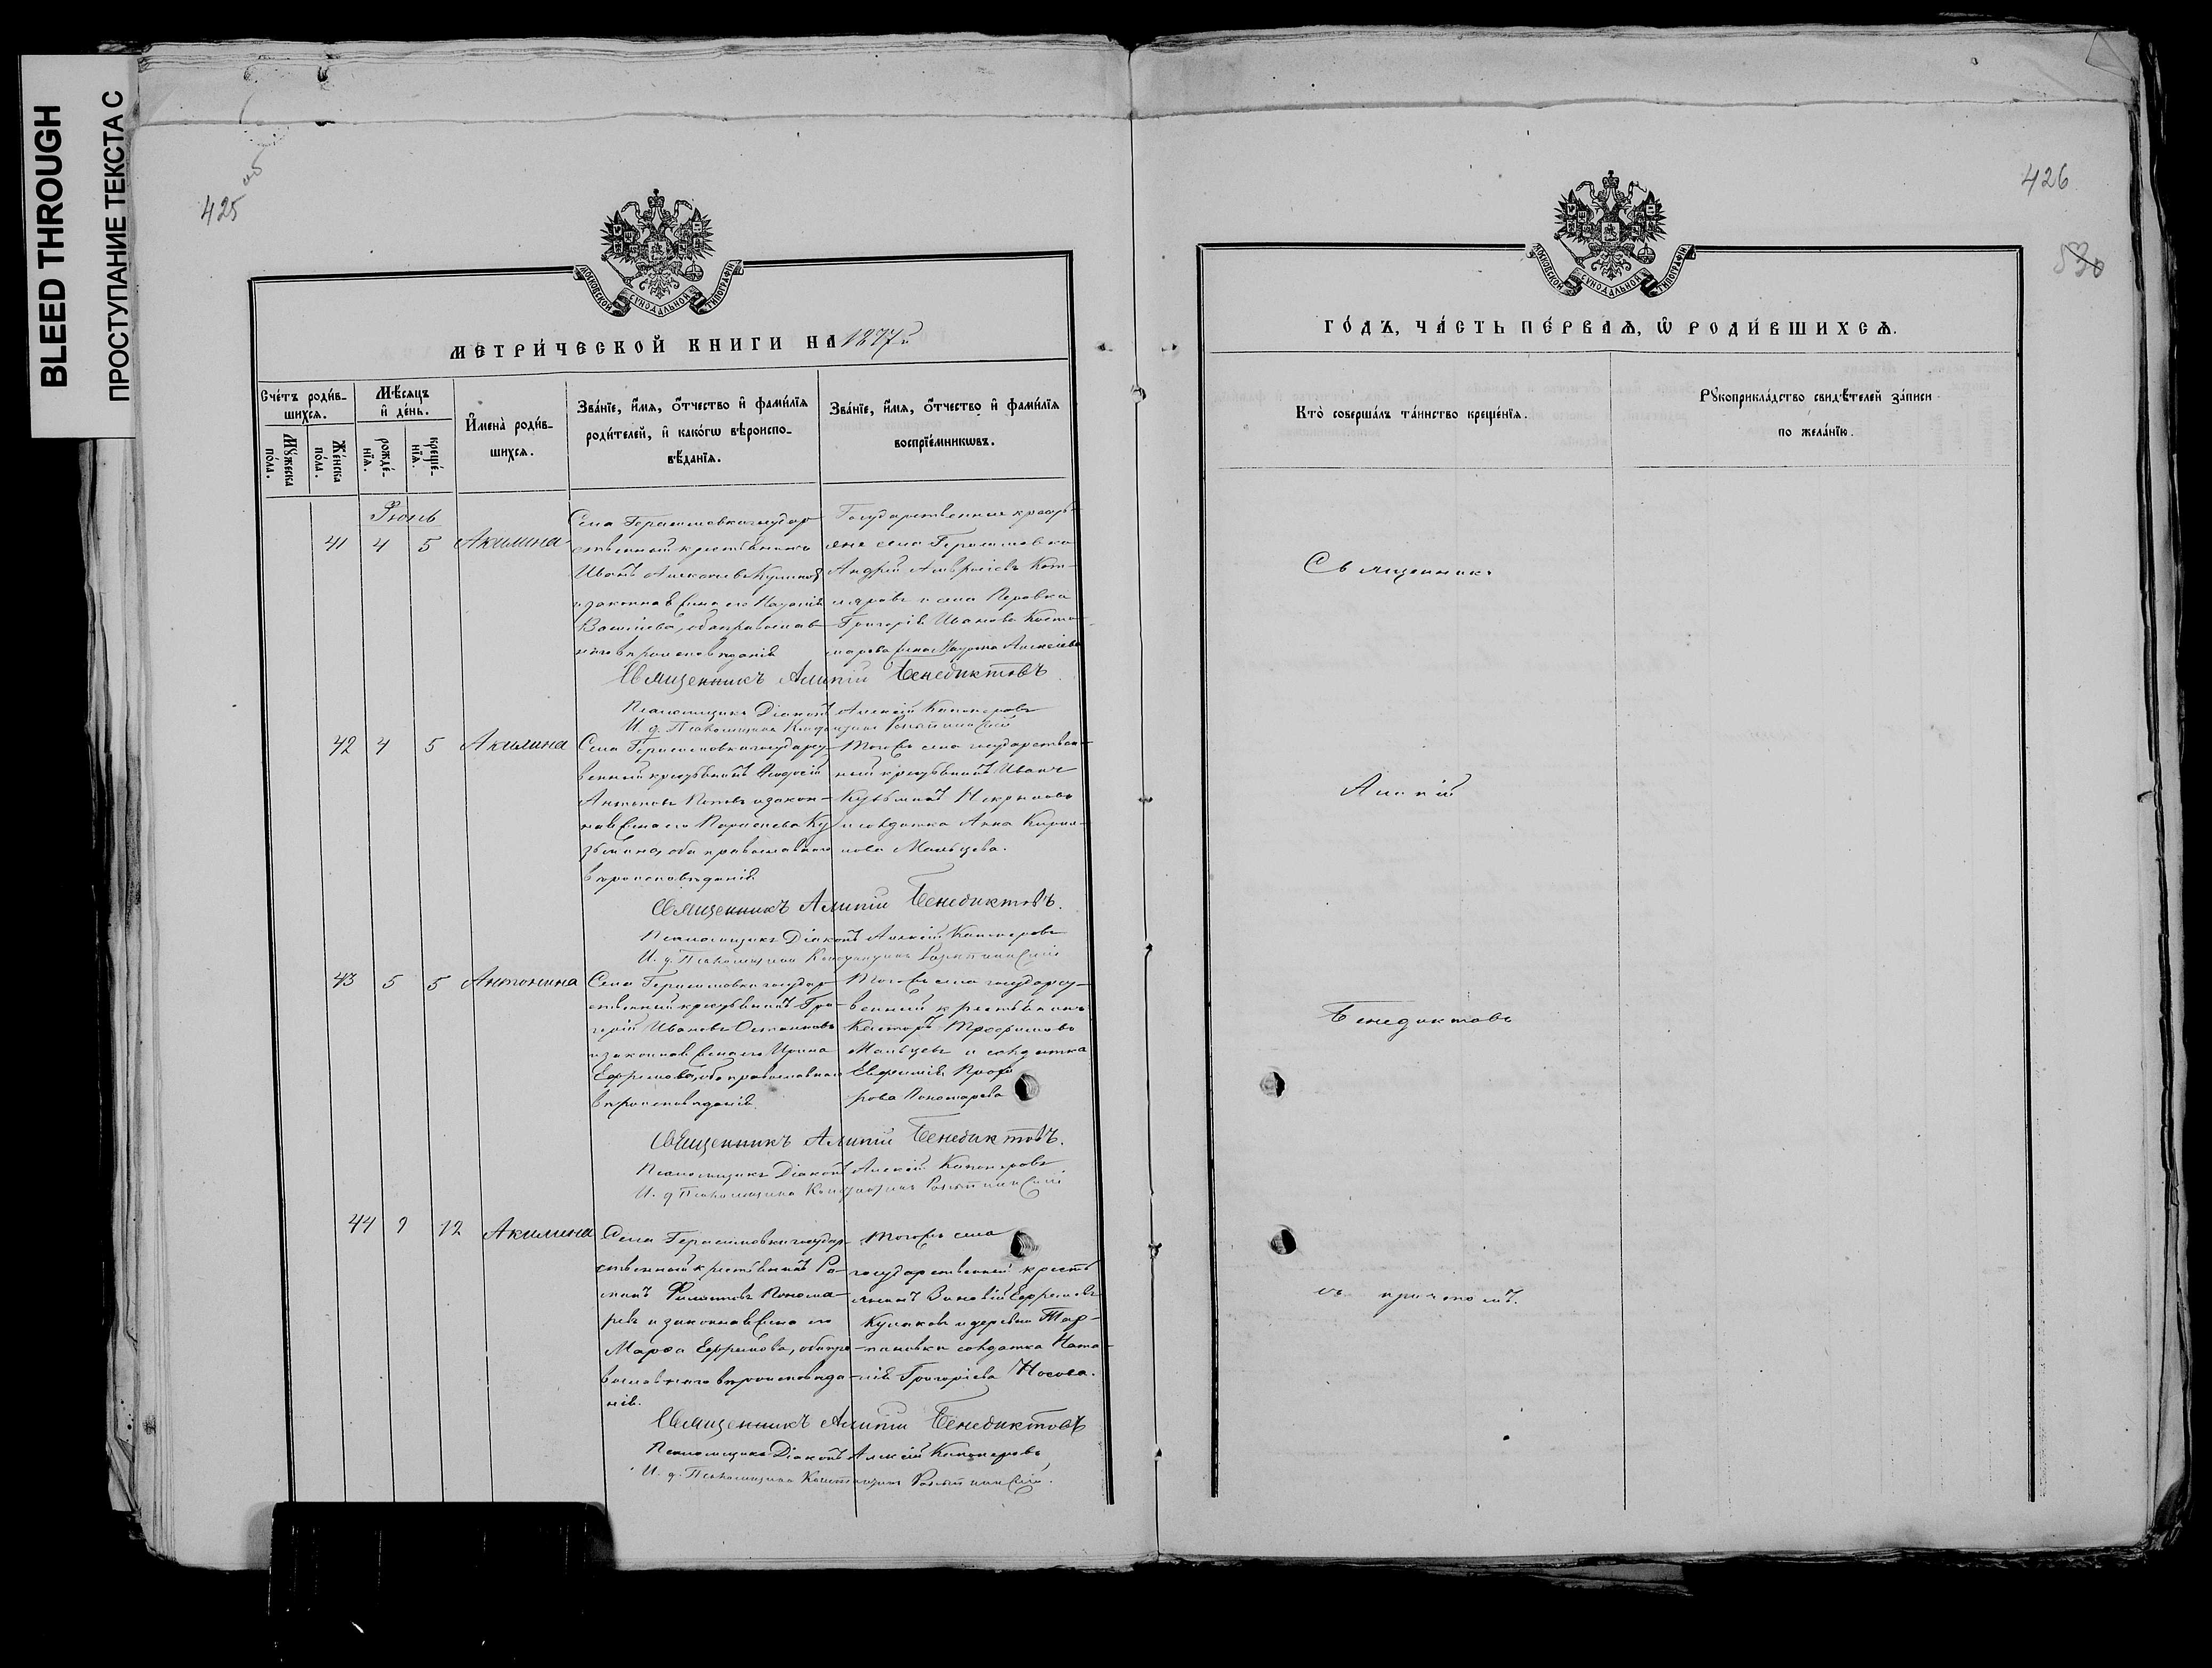 BLEED THROUGH
ПРОСТУПАНИЕ ТЕКСТА С
425 об
МОСКОВСКОЙ СѴНОДАЛЬНОЙ ТИПОГРАФІИ
МЕТРИ́ЧЕСКОЙ КНИГИ НА 1877й
Сче́тъ роди́в-
шихсѧ.
Мꙋ́жеска
по́ла.
Же́нска
по́ла.
Мѣ́сѧцъ
и҆ де́нь.
рожде́-
нїѧ.
креще́-
нїѧ.
И҆мена̀ роди́в-
шихсѧ.
Зва́нїе, и҆́мѧ, ѻ҆́тчество и҆ фами́лїѧ
роди́телей, и҆ како́гѡ вѣроиспо-
вѣ́данїѧ.
Зва́нїе, и҆́мѧ, ѻ҆́тчество и҆ фами́лїѧ
воспрїе́мникѡвъ.
Іюнь
41 4 5 Акилина
Села Герасимовки государ-
ственный крестьянинъ
Иванъ Алексѣевъ
и законная жена его
Васильева, оба православ-
наго вѣроисповѣданія
Государственные кресть-
яне села Герасимовки
Андрей Амвросіевъ Кот-
ляровъ и села Перовки
Григорія Иванова Косто-
марова жена Алексѣева
Священникъ Алипій Бенедиктовъ
Псаломщикъ Діаконъ Алексій Канонеровъ
И. д. Псаломщика
42 4 5 Акилина
Села Герасимовки государст-
венный крестьянинъ Ѳеодосій
Антоновъ Поповъ и закон-
ная жена его Параскева Ку-
зьмина, оба православнаго
вѣроисповѣданія.
Тогожъ села государствен-
ный крестьянинъ Иванъ
Кузьминъ Некрыловъ
и солдатка Анна Кирил-
лова Мальцева.
Священникъ Алипій Бенедиктовъ.
Псаломщикъ Діаконъ Алексій Канонеровъ
И. д. Псаломщика
43 5 5 Антонина
Села Герасимовки государ-
ственный крестьянинъ Гри-
горій Ивановъ Остапковъ
и законная жена его Ирина
Ефремова, оба православнаго
вѣроисповѣданія.
Тогожъ села государст-
венный крестьянинъ
Несторъ Трофимовъ
Мальцевъ и солдатка
Евфимія Прохо
рова Пономарева
Священникъ Алипій Бенедиктовъ.
Псаломщикъ Діаконъ Алексій Канонеровъ
И. д. Псаломщика
44 9 12 Акилина
Села Герасимовки государ-
ственный крестьянинъ Ро-
манъ Филиповъ Понома-
ревъ и законная жена его
Марѳа Ефремова, оба пра-
вославнаго вѣроисповѣда-
нія.
Тогожъ села
государственный кресть
янинъ Зиновій Ефремовъ
Кулаковъ и деревни Тар-
пановки солдатка Ната-
лія Григоріева Носова.
Священникъ Алипій Бенедиктовъ
Псаломщикъ Діаконъ Алексій Канонеровъ
И. д. Псаломщика
426
530
МОСКОВСКОЙ СѴНОДАЛЬНОЙ ТИПОГРАФІИ
ГО́ДЪ, ЧА́СТЬ ПЕ́РВАѦ, Ѽ РОДИ́ВШИХСѦ.
Кто̀ соверша́лъ та́инство креще́нїѧ.
Рꙋкоприкла́дство свидѣ́телей за́писи
по жела́нїю.
Священникъ
Алипій
Бенедиктовъ
съ причтомъ.